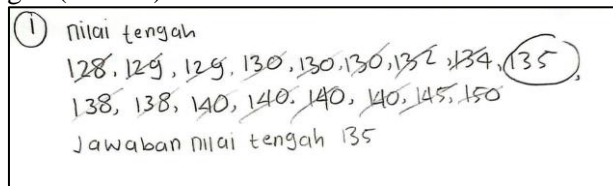 ① nilai tengah
128, 129, 129, 130, 130, 130, 132, 134, 135,
138, 138, 140, 140. 140, 140, 145, 150
Jawaban nilai tengah 135